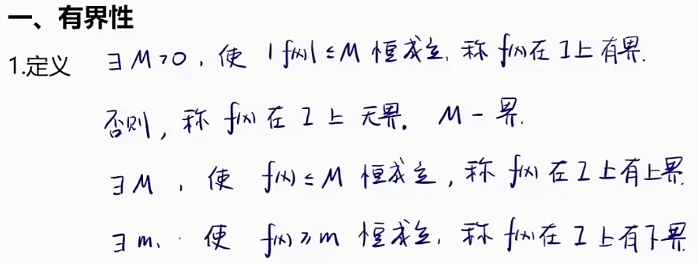 一、有界性
1.定义 ∃M>0, 使 |f(x)|≤M 恒成立, 称 f(x)在I上有界.
否则, 称 f(x) 在 I 上 无界. M-界.
∃M, 使 f(x)≤M 恒成立, 称 f(x) 在 I 上有上界.
∃m, 使 f(x)≥m 恒成立, 称 f(x)在 I 上有下界